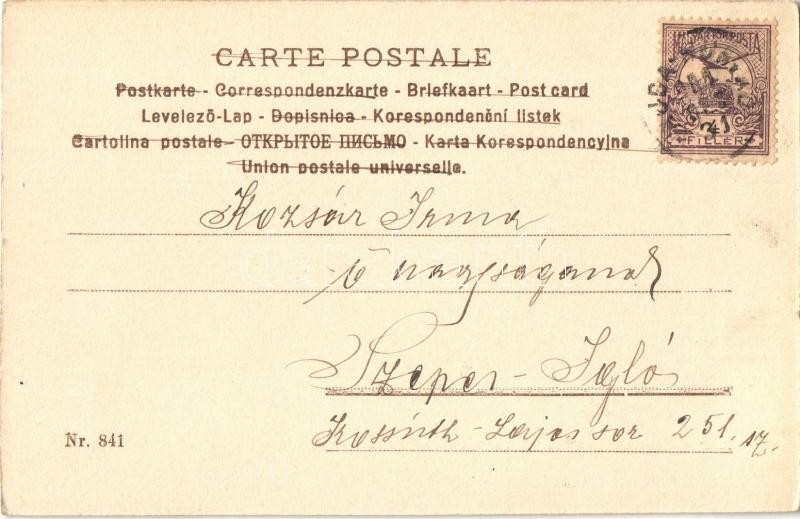 CARTE POSTALE
Postkarte - Correspondenzkarte - Briefkaart - Post card
Levelezö-Lap - Dopisnica - Korespondenční listek
Cartolina postale - ОТКРЫТОЕ ПИСЬМО - Karta Korespondencyjna
Union postale universelle.
MAGYAR KIR. POSTA
FILLÉR
Kozsár Irma
ő nagyságának
Szepes-Igló
Kossuth-Lajos sor 251. sz.
Nr. 841